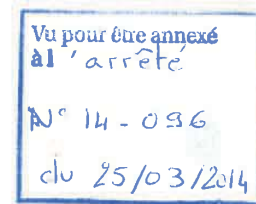 Vu pour être annexé
à l'arrêté
N° 14-096
du 25/03/2014